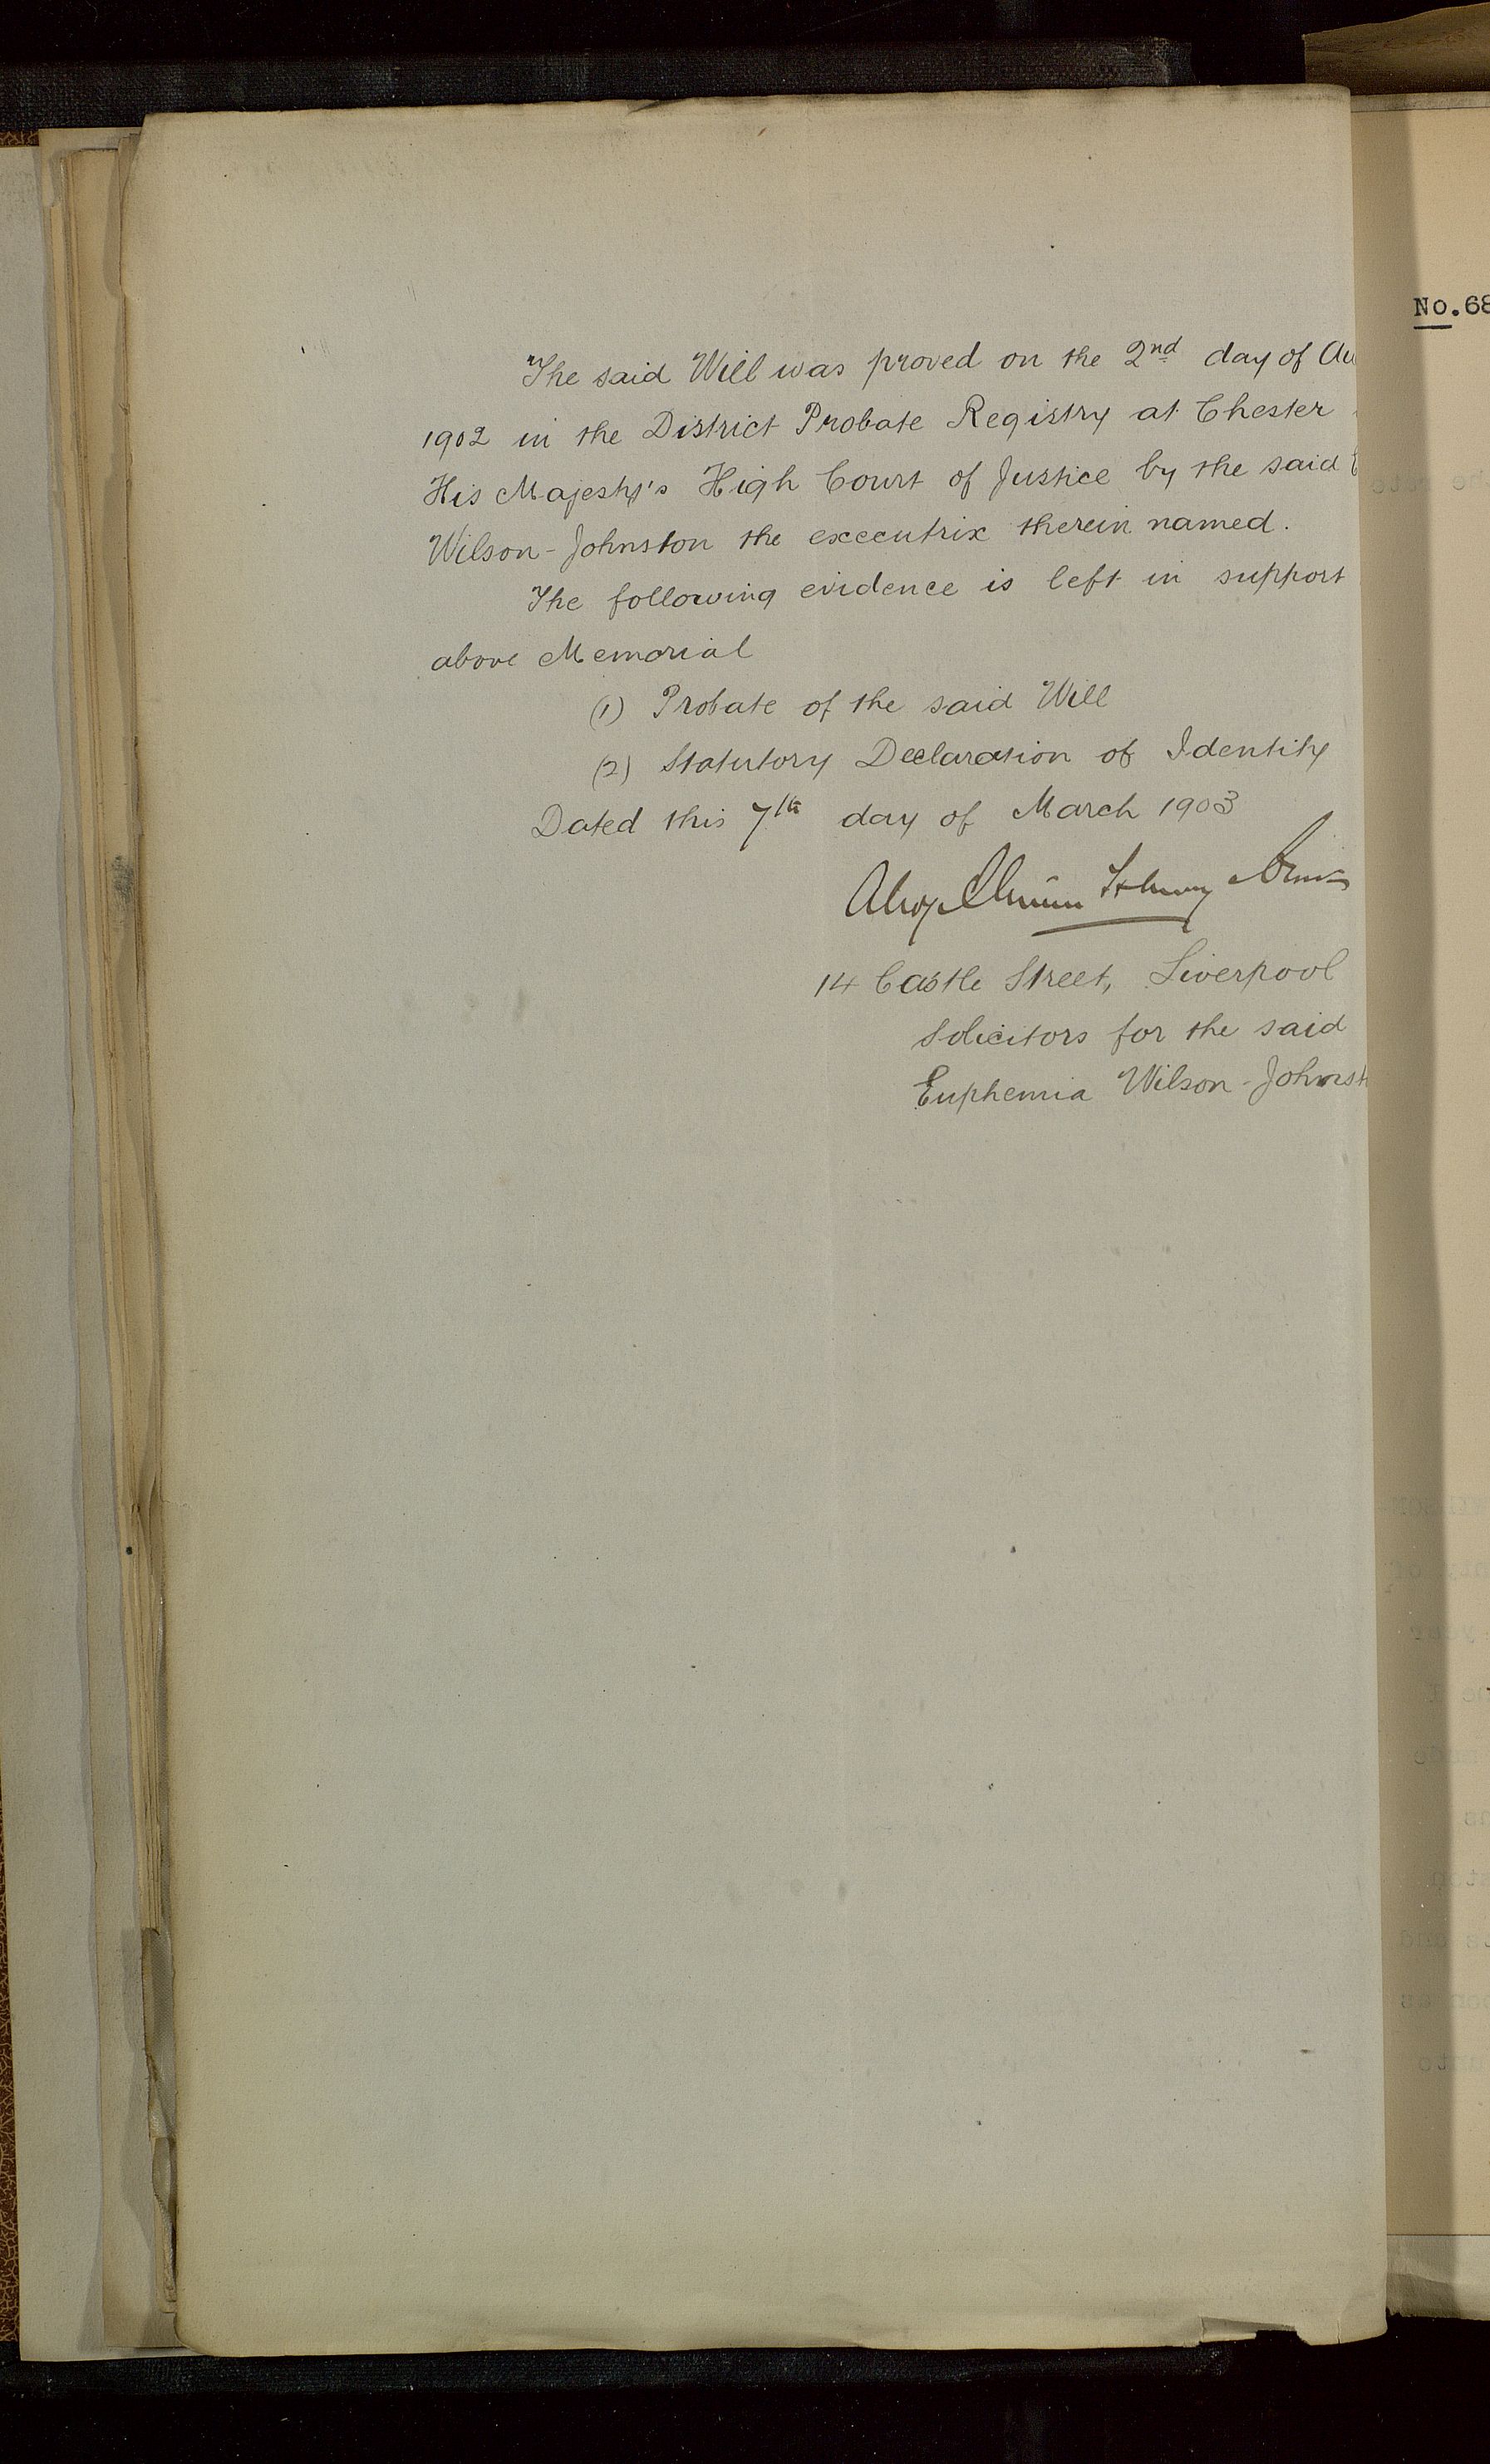 The said Will was proved on the 2nd day of Au
1902 in the District Probate Registry at Chester
His Majesty's High Court of Justice by the said E
Wilson-Johnston the executrix therein named.
The following evidence is left in support
above Memorial
(1) Probate of the said Will
(2) Statutory Declaration of Identity
Dated this 7th day of March 1903
14 Castle Street, Liverpool
Solicitors for the said
Euphemia Wilson-Johnst
No.68